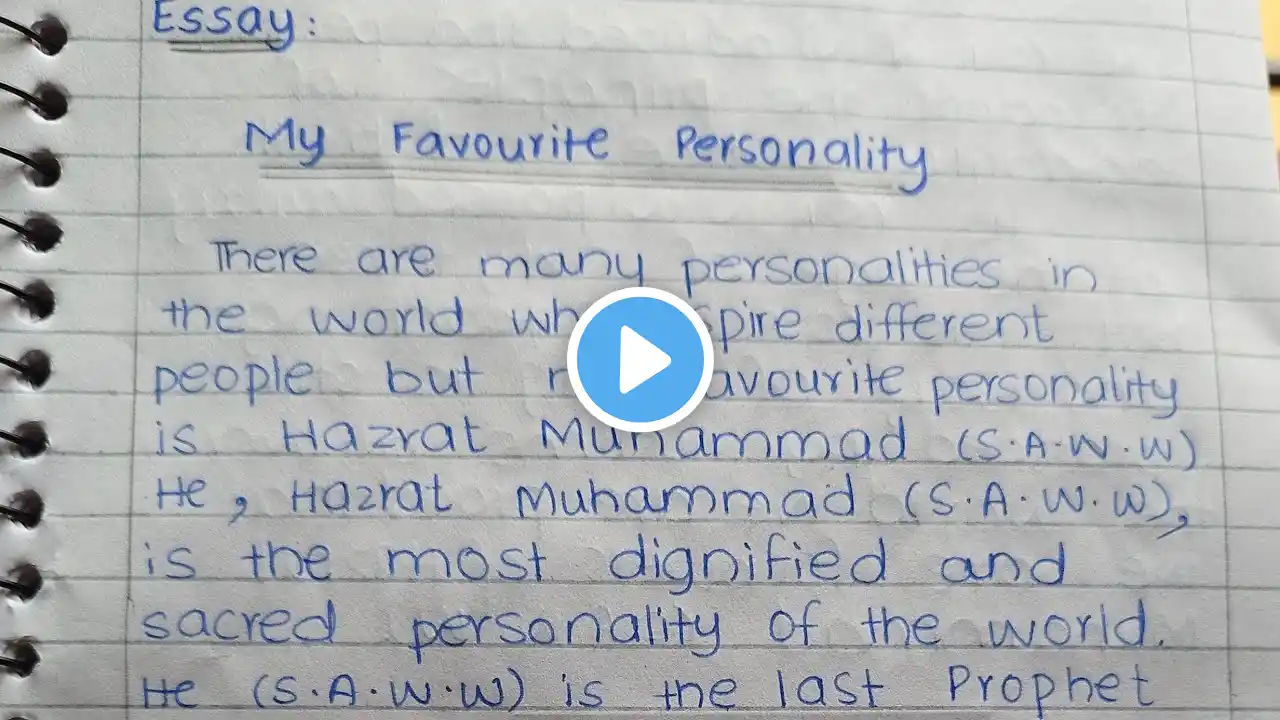 Essay:
My Favourite Personality
There are many personalities in
the world spire different
people but avourite personality
is Hazrat Muhammad (S.A.W.W)
He, Hazrat Muhammad (S.A.W.W),
is the most dignified and
sacred personality of the world.
He (S.A.W.W) is the last Prophet